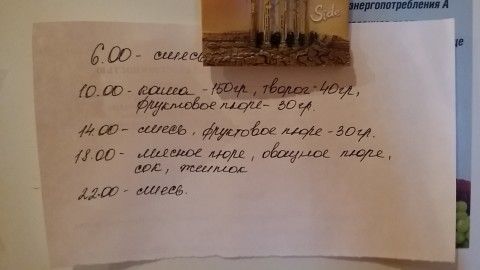 Side
энергопотребления А
6.00 - смесь
10.00 - каша - 150гр, творог - 40гр,
фруктовое пюре - 30гр.
14.00 - смесь, фруктовое пюре - 30гр.
18.00 - мясное пюре, овощное пюре,
сок, желток
22.00 - смесь.